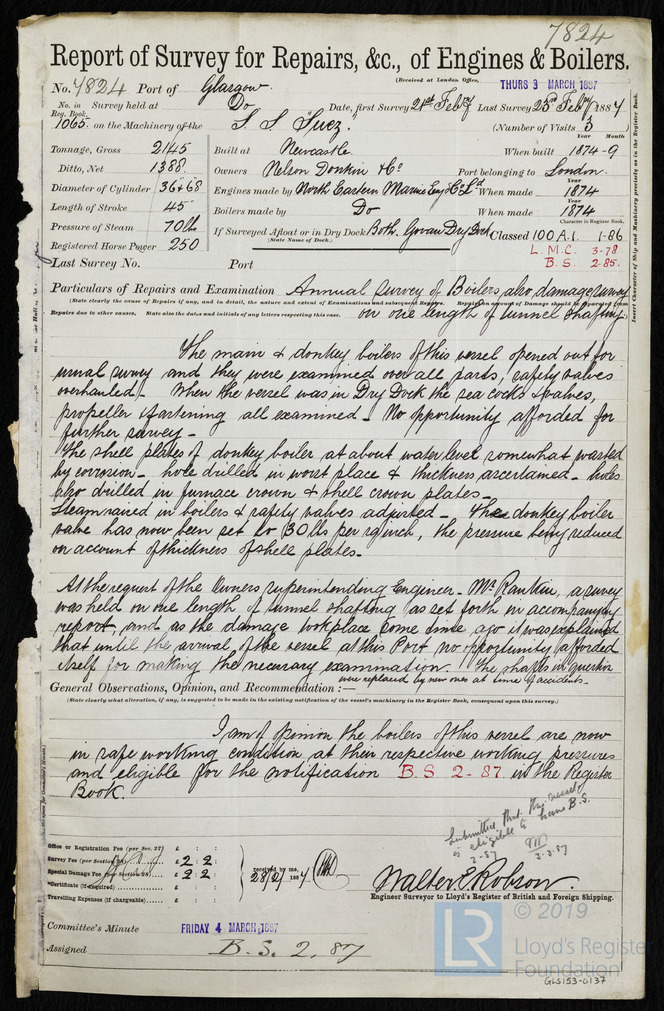 7824
Report of Survey for Repairs, &c., of Engines & Boilers.
(Received at London Office, THURS 3 MARCH 1887
No. 7824 Port of Glasgow.
No. in Reg. Book. Survey held at Do. Date, first Survey 21st Feby Last Survey 23rd Feby 1887
1065. on the Machinery of the S. S. Suez. (Number of Visits 3)
Tonnage, Gross 2145 Built at Newcastle When built Year 1874 Month 9
Ditto, Net 1388 Owners Nelson Donkin & Co Port belonging to London.
Diameter of Cylinder 36 & 68 Engines made by North Eastern Marine Eng Co Ld When made Year 1874
Length of Stroke 45 Boilers made by Do When made Year 1874
Pressure of Steam 70 lbs If Surveyed Afloat or in Dry Dock Both. Govan Dry Dock Classed Character in Register Book. 100 A.1. 1-86
(State Name of Dock.)
Registered Horse Power 250 L.M.C. 3-78
Last Survey No. Port B.S. 2-85.
Insert Character of Ship and Machinery precisely as in the Register Book.
Particulars of Repairs and Examination Annual survey of Boilers, also damage survey
(State clearly the cause of Repairs if any, and in detail, the nature and extent of Examinations and subsequent Repairs.
Repairs due to other causes. State also the dates and initials of any letters respecting this case. on one length of tunnel shafting.
The main & donkey boilers of this vessel opened out for
usual survey and they were examined over all parts, safety valves
overhauled - When the vessel was in Dry Dock the sea cocks & valves,
propeller & fastening all examined - No opportunity afforded for
further survey -
The shell plates of donkey boiler at about water level somewhat wasted
by corrosion - hole drilled in worst place & thickness ascertained - holes
also drilled in furnace crown & shell crown plates -
Steam raised in boilers & safety valves adjusted - The donkey boiler
valve has now been set to 30 lbs per sq inch, the pressure being reduced
on account of thickness of shell plates -
At the request of the Owners superintending Engineer - Mr Rankin, a survey
was held on one length of tunnel shafting as set forth in accompanying
report, and as the damage took place some time ago it was explained
that until the arrival of the vessel at this Port no opportunity afforded
itself for making the necessary examination. The shafts in question
were replaced by new ones at time of accidents.
General Observations, Opinion, and Recommendation :—
(State clearly what alteration, if any, is suggested to be made in the existing notification of the vessel's machinery in the Register Book, consequent upon this survey.)
I am of opinion the boilers of this vessel are now
in safe working condition at their respective working pressures
and eligible for the notification B.S. 2-87 in the Register
Book.
Submitted, that this vessel
is eligible to have B.S.
2-87
3-3-87
Office or Registration Fee (per Sec. 27) £ : :
Survey Fee (per Section 28) £ 2 : 2 :
Special Damage Fee (per Section 28) £ 2 : 2 : received by me, 28/2/1887
*Certificate (if required) £ : :
Travelling Expenses (if chargeable) £ : :
Walter E. Robson.
Engineer Surveyor to Lloyd's Register of British and Foreign Shipping.
Committee's Minute FRIDAY 4 MARCH 1887
Assigned B.S. 2, 87
© 2019
LR Lloyd's Register
Foundation
GLS153-0137